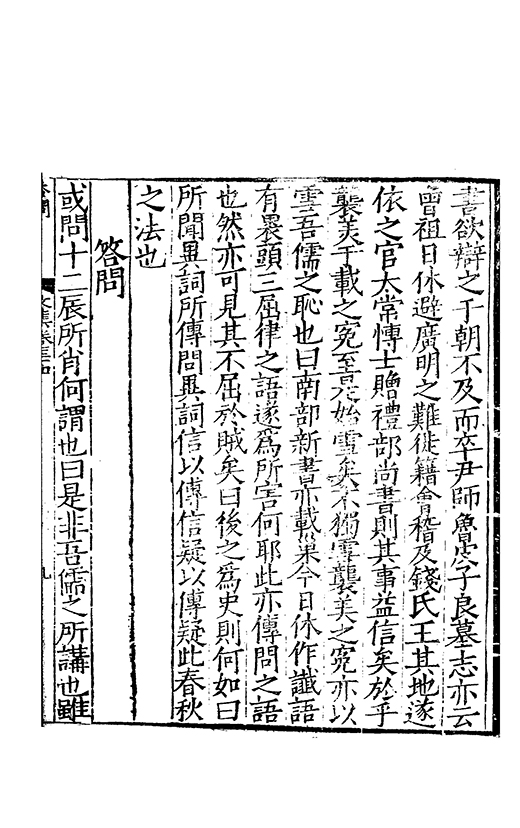 書欲辯之于朝不及而卒尹師魯作子良墓志亦云
曾祖日休避廣明之難徙籍會稽及錢氏王其地遂
依之官太常愽士贈禮部尚書則其事益信矣於乎
襲美千載之寃至是始雪矣不獨雪襲美之寃亦以
雪吾儒之恥也曰南部新書亦載巢令日休作讖語
有褁頭三屈律之語遂爲所害何耶此亦傳聞之語
也然亦可見其不屈於賊矣曰後之爲史則何如曰
所聞異詞所傳聞異詞信以傳信疑以傳疑此春秋
之法也
答問
或問十二辰所肖何謂也曰是非吾儒之所講也雖
九